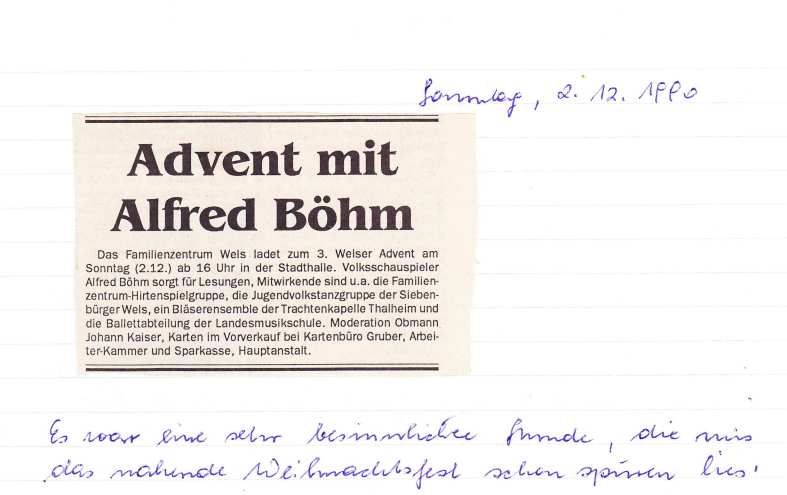 Sonntag, 2. 12. 1990
Advent mit
Alfred Böhm
Das Familienzentrum Wels ladet zum 3. Welser Advent am
Sonntag (2.12.) ab 16 Uhr in der Stadthalle. Volksschauspieler
Alfred Böhm sorgt für Lesungen, Mitwirkende sind u.a. die Familien-
zentrum-Hirtenspielgruppe, die Jugendvolkstanzgruppe der Sieben-
bürger Wels, ein Bläserensemble der Trachtenkapelle Thalheim und
die Ballettabteilung der Landesmusikschule. Moderation Obmann
Johann Kaiser, Karten im Vorverkauf bei Kartenbüro Gruber, Arbei-
ter-Kammer und Sparkasse, Hauptanstalt.
Es war eine sehr besinnliche Stunde, die uns
das nahende Weihnachtsfest schon spüren lies!